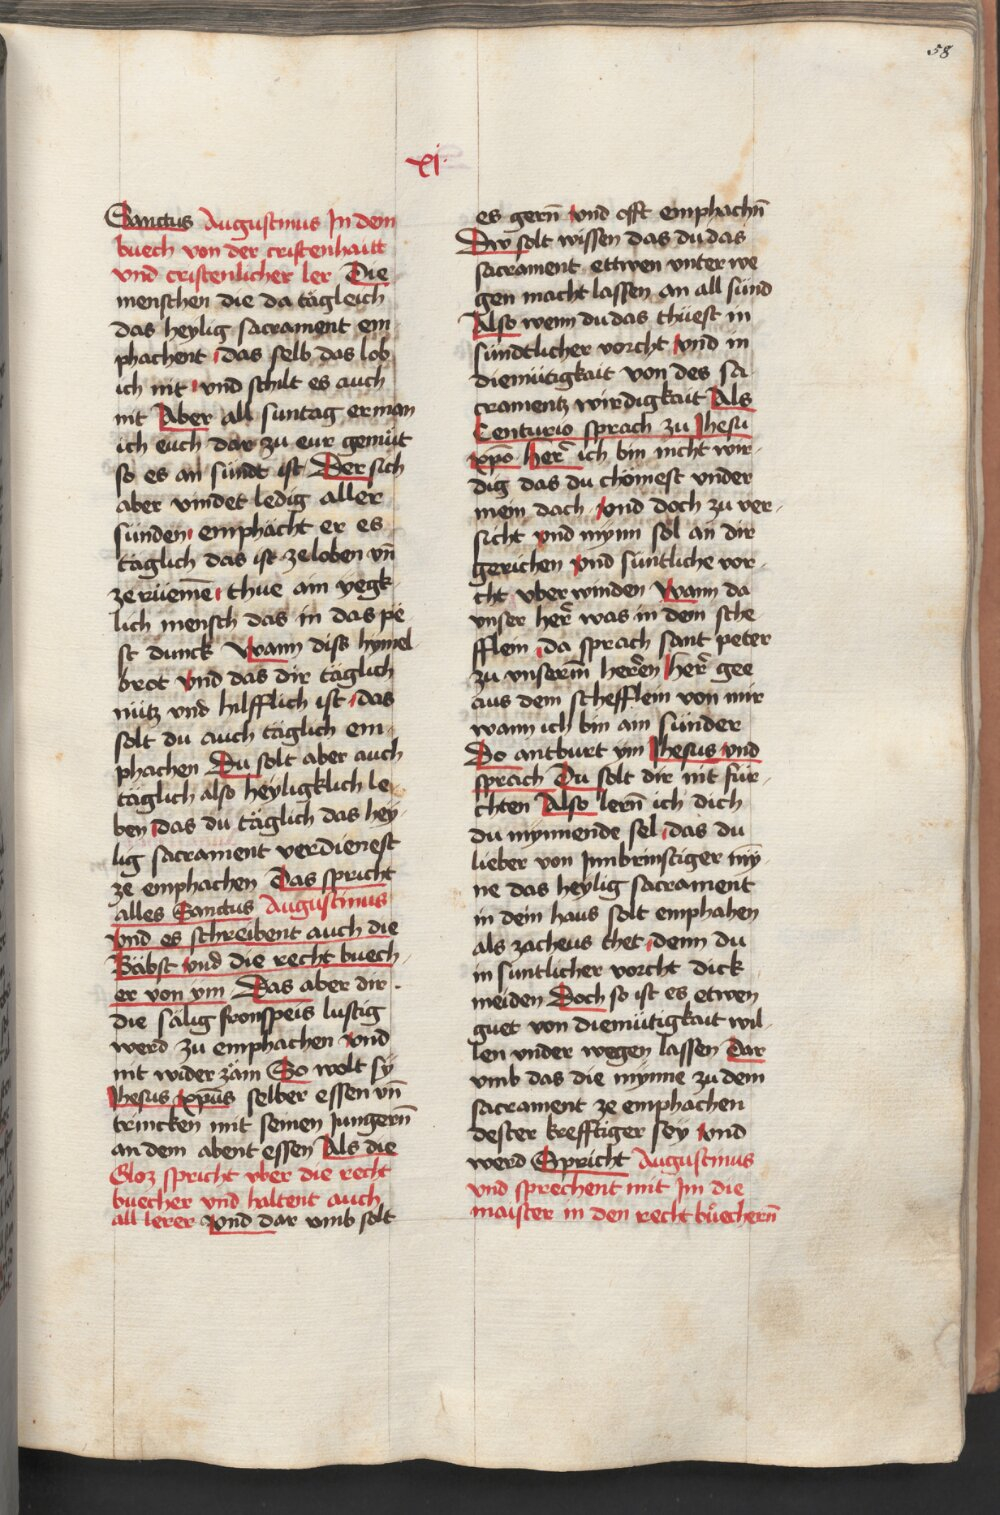 58
xj.
Sanctus Augustinus Jn dem
buech von der cristenhaitt
vnd cristenlicher ler Die
menschen die da tägleich
das heylig sacrament em
phachent das selb das lob
ich nit vnd schilt es auch
nit Aber all suntag erman
ich euch dar zu eur gemüt
so es an sündt ist Der sich
aber vindet ledig aller
sünden emphächt er es
täglich das ist ze loben vn̄
ze rüemē thue ain yegk
lich mensch das in das pe
st dunck Wann diss hymel
brot vnd das dir täglich
nütz vnd hilfflich ist das
solt du auch täglich em
phachen Du solt aber auch
täglich also heyligklich le
ben das du täglich das hey
lig sacrament verdienest
ze emphachen Das spricht
alles Sanctus Augustinus
vnd es schreibent auch die
Bäbst vnd die recht buech
er von ym Das aber dir
die sälig fronspeis lustig
werd zu emphachen vnd
nit wider zäm So wolt sy
Jhesus xp̄us selber essen vn̄
trincken mit seinen Jungern̄
an dem abent essen Als die
Gloz spricht vber die recht
buecher vnd haltent auch
all lerer Vnd dar vmb solt
es gern̄ vnd offt emphachn̄
Dw solt wissen das du das
sacrament ettwen vnter we
gen macht lassen an all sünd
Also wenn du das thüest in
sündtlicher vorcht vnd in
diemütigkait von des sa
cramentz wirdigkait Als
Centurio sprach zu Jhesu
xp̄o her̄ ich bin nicht wir
dig das du chömest vnder
mein dach vnd doch zu ver
sicht vnd mynn sol an dir
gerichen vnd süntliche vor
cht vber winden Wann da
vnser her̄ was in dem sche
fflein da sprach sant peter
zu vnserm̄ herēn her̄ gee
aus dem schefflein von mir
wann ich bin ain sünder
Do antburt ym Jhesus vnd
sprach Du solt dir nit für
chten Also lern̄ ich dich
du mynnende sel das du
lieber von Jnnbrinstiger mȳ
ne das heylig sacrament
in dein haus solt emphahen
als zacheus thet denn du
in suntlicher vorcht dick
meiden Doch so ist es etwen
guet von diemütigkait wil
len vnder wegen lassen Dar
vmb das die mynne zu dem
sacrament ze emphachen
dester krefftiger sey vnd
werd Spricht Augustinus
vnd sprechent mit Jm die
maister in den recht büechern̄